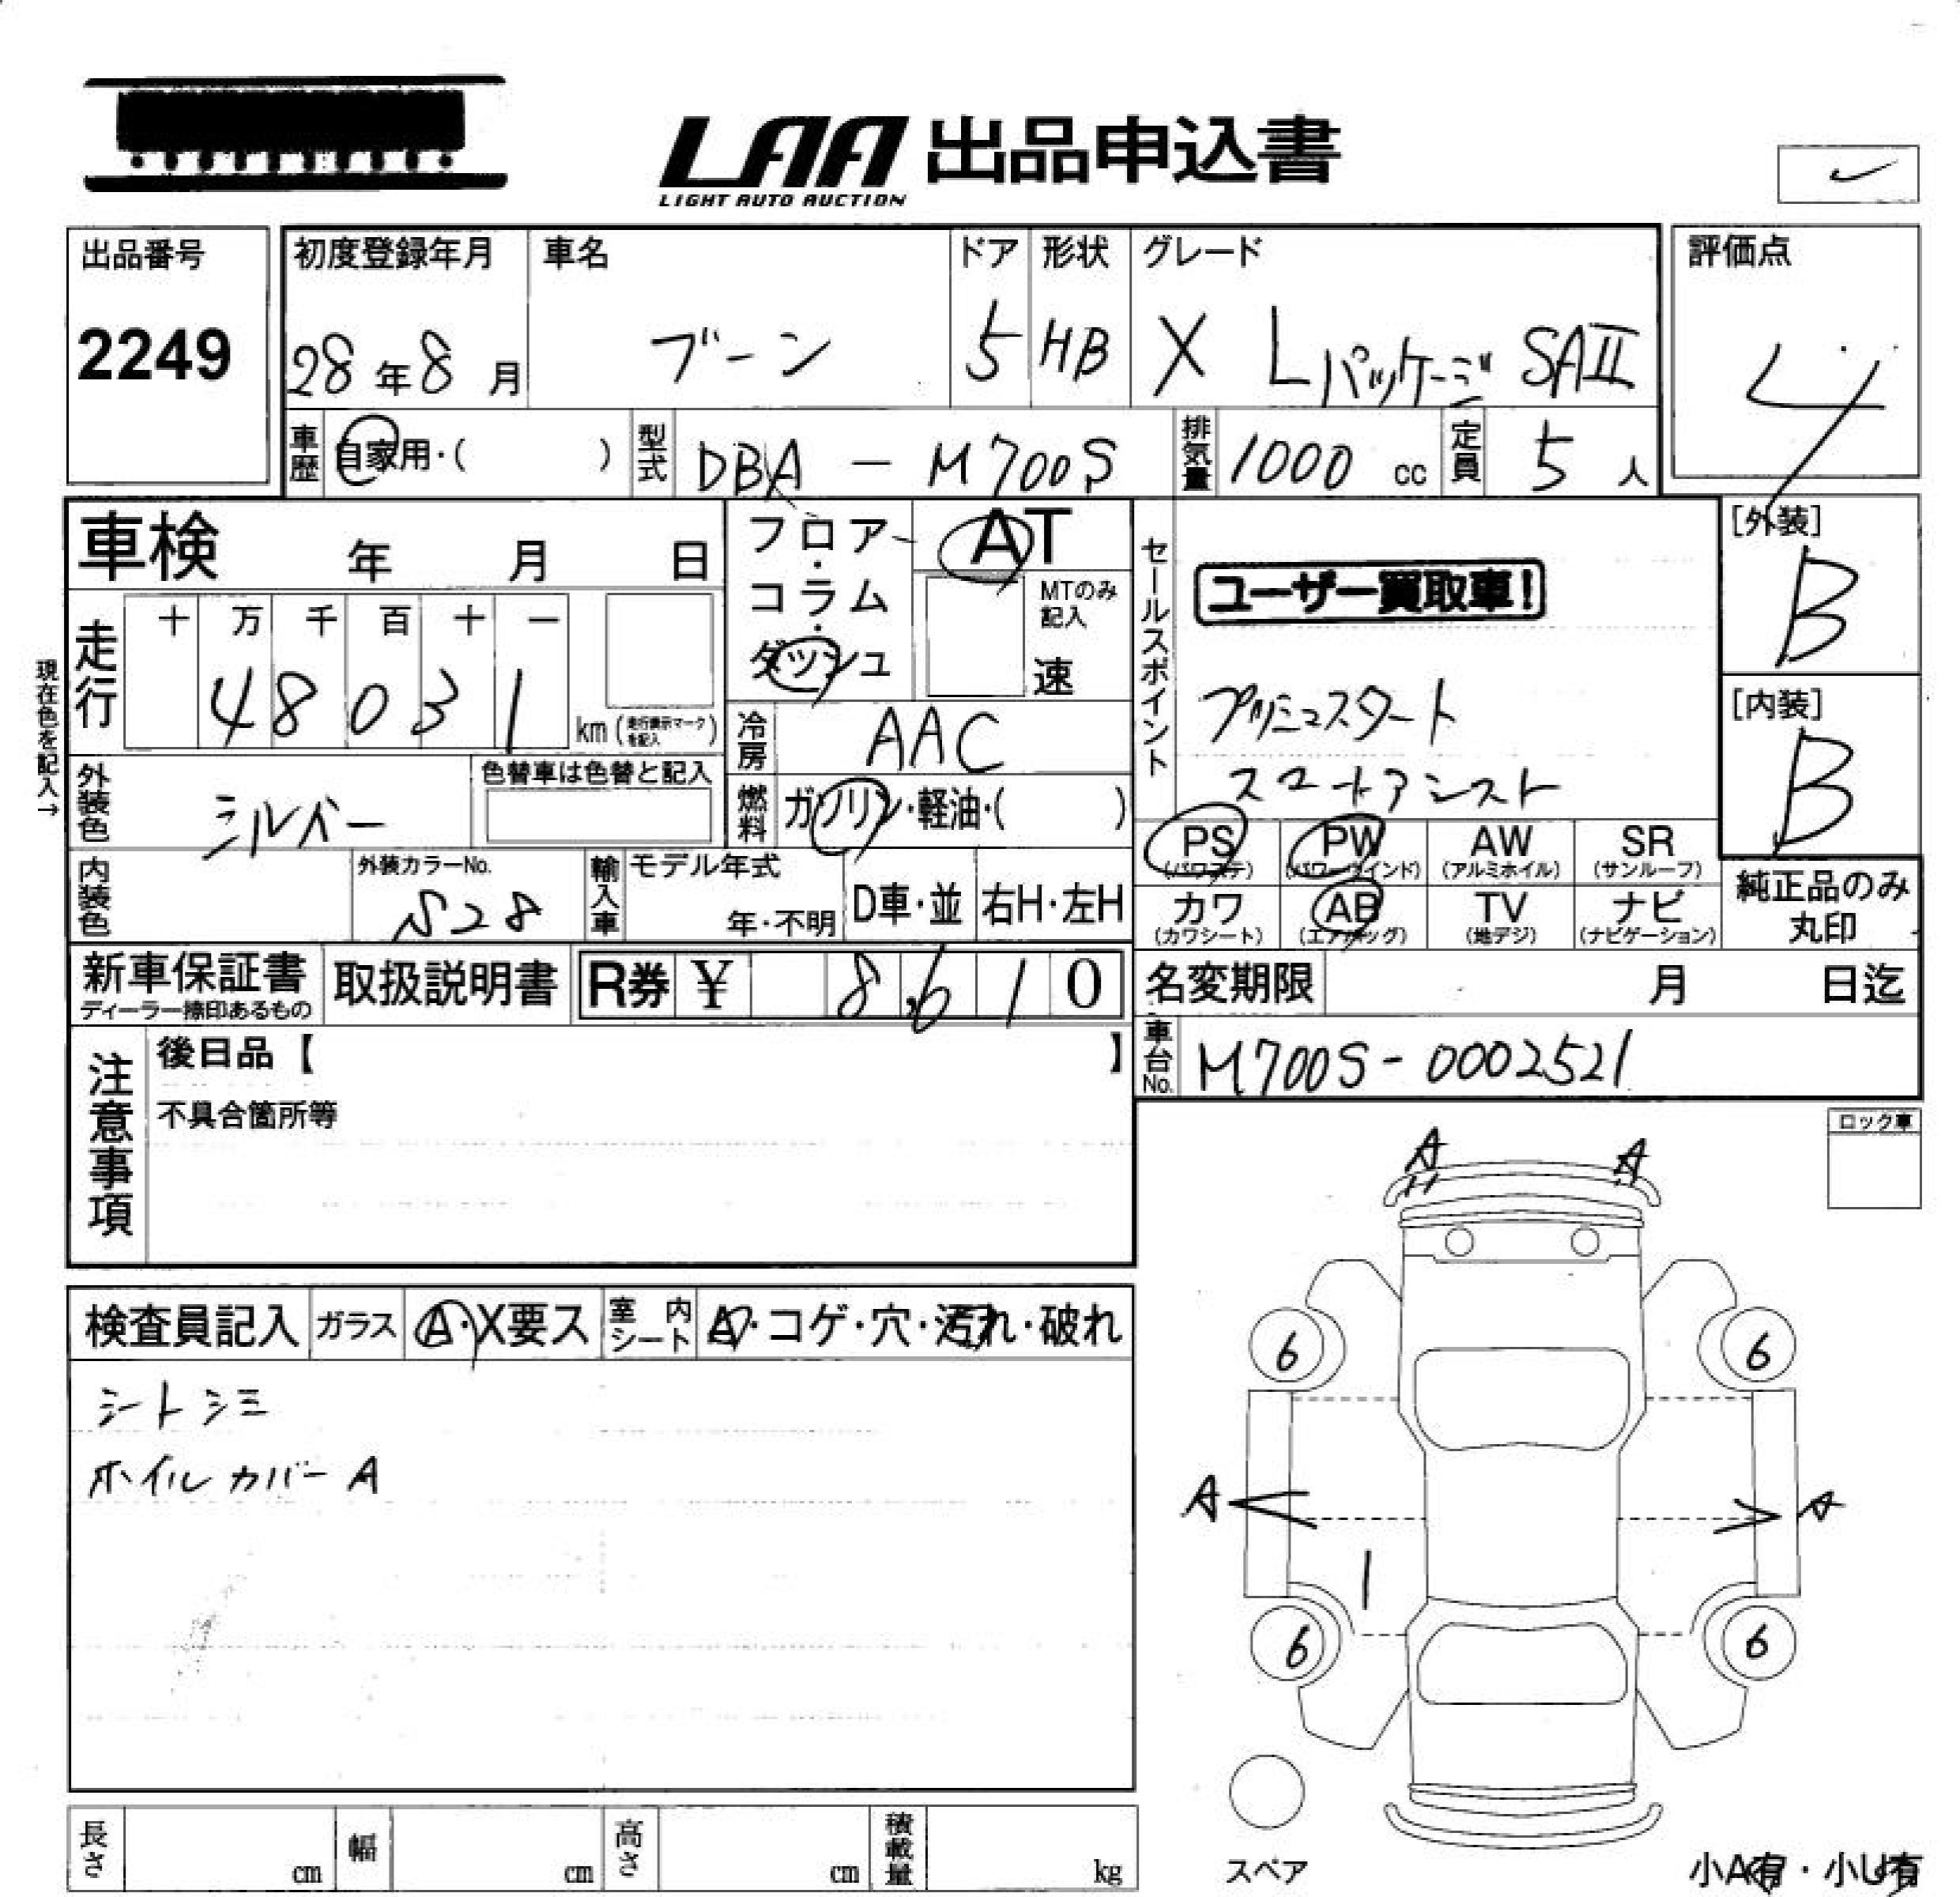 LAA 出品申込書
LIGHT AUTO AUCTION
出品番号
2249
初度登録年月
28年8月
車名
ブーン
ドア
5
形状
HB
グレード
X Lパッケージ SAⅡ
評価点
4
車歴
自家用・( )
型式
DBA - M700S
排気量
1000 cc
定員
5 人
車検 年 月 日
フロア・コラム・ダッシュ
AT
MTのみ記入
速
セールスポイント
ユーザー買取車!
プッシュスタート
スマートアシスト
[外装]
B
[内装]
B
現在色を記入→
走行
十 万 千 百 十 一
4 8 0 3 1
km (走行表示マークを記入)
冷房
AAC
燃料
ガソリン・軽油・( )
外装色
シルバー
色替車は色替と記入
内装色
外装カラーNo.
S28
輸入車
モデル年式
年・不明
D車・並
右H・左H
PS
(パワステ)
PW
(パワーウインド)
AW
(アルミホイル)
SR
(サンルーフ)
カワ
(カワシート)
AB
(エアバッグ)
TV
(地デジ)
ナビ
(ナビゲーション)
純正品のみ
丸印
新車保証書
ディーラー捺印あるもの
取扱説明書
R券 ¥ 8,610
名変期限 月 日迄
車台No.
M700S-0002521
注意事項
後日品【 】
不具合箇所等
ロック車
検査員記入
ガラス
A・X要ス
室内シート
A・コゲ・穴・汚れ・破れ
シートシミ
ホイルカバーA
A
A
6
6
A
A
1
6
6
スペア
小A有・小U有
長さ cm
幅 cm
高さ cm
積載量 kg